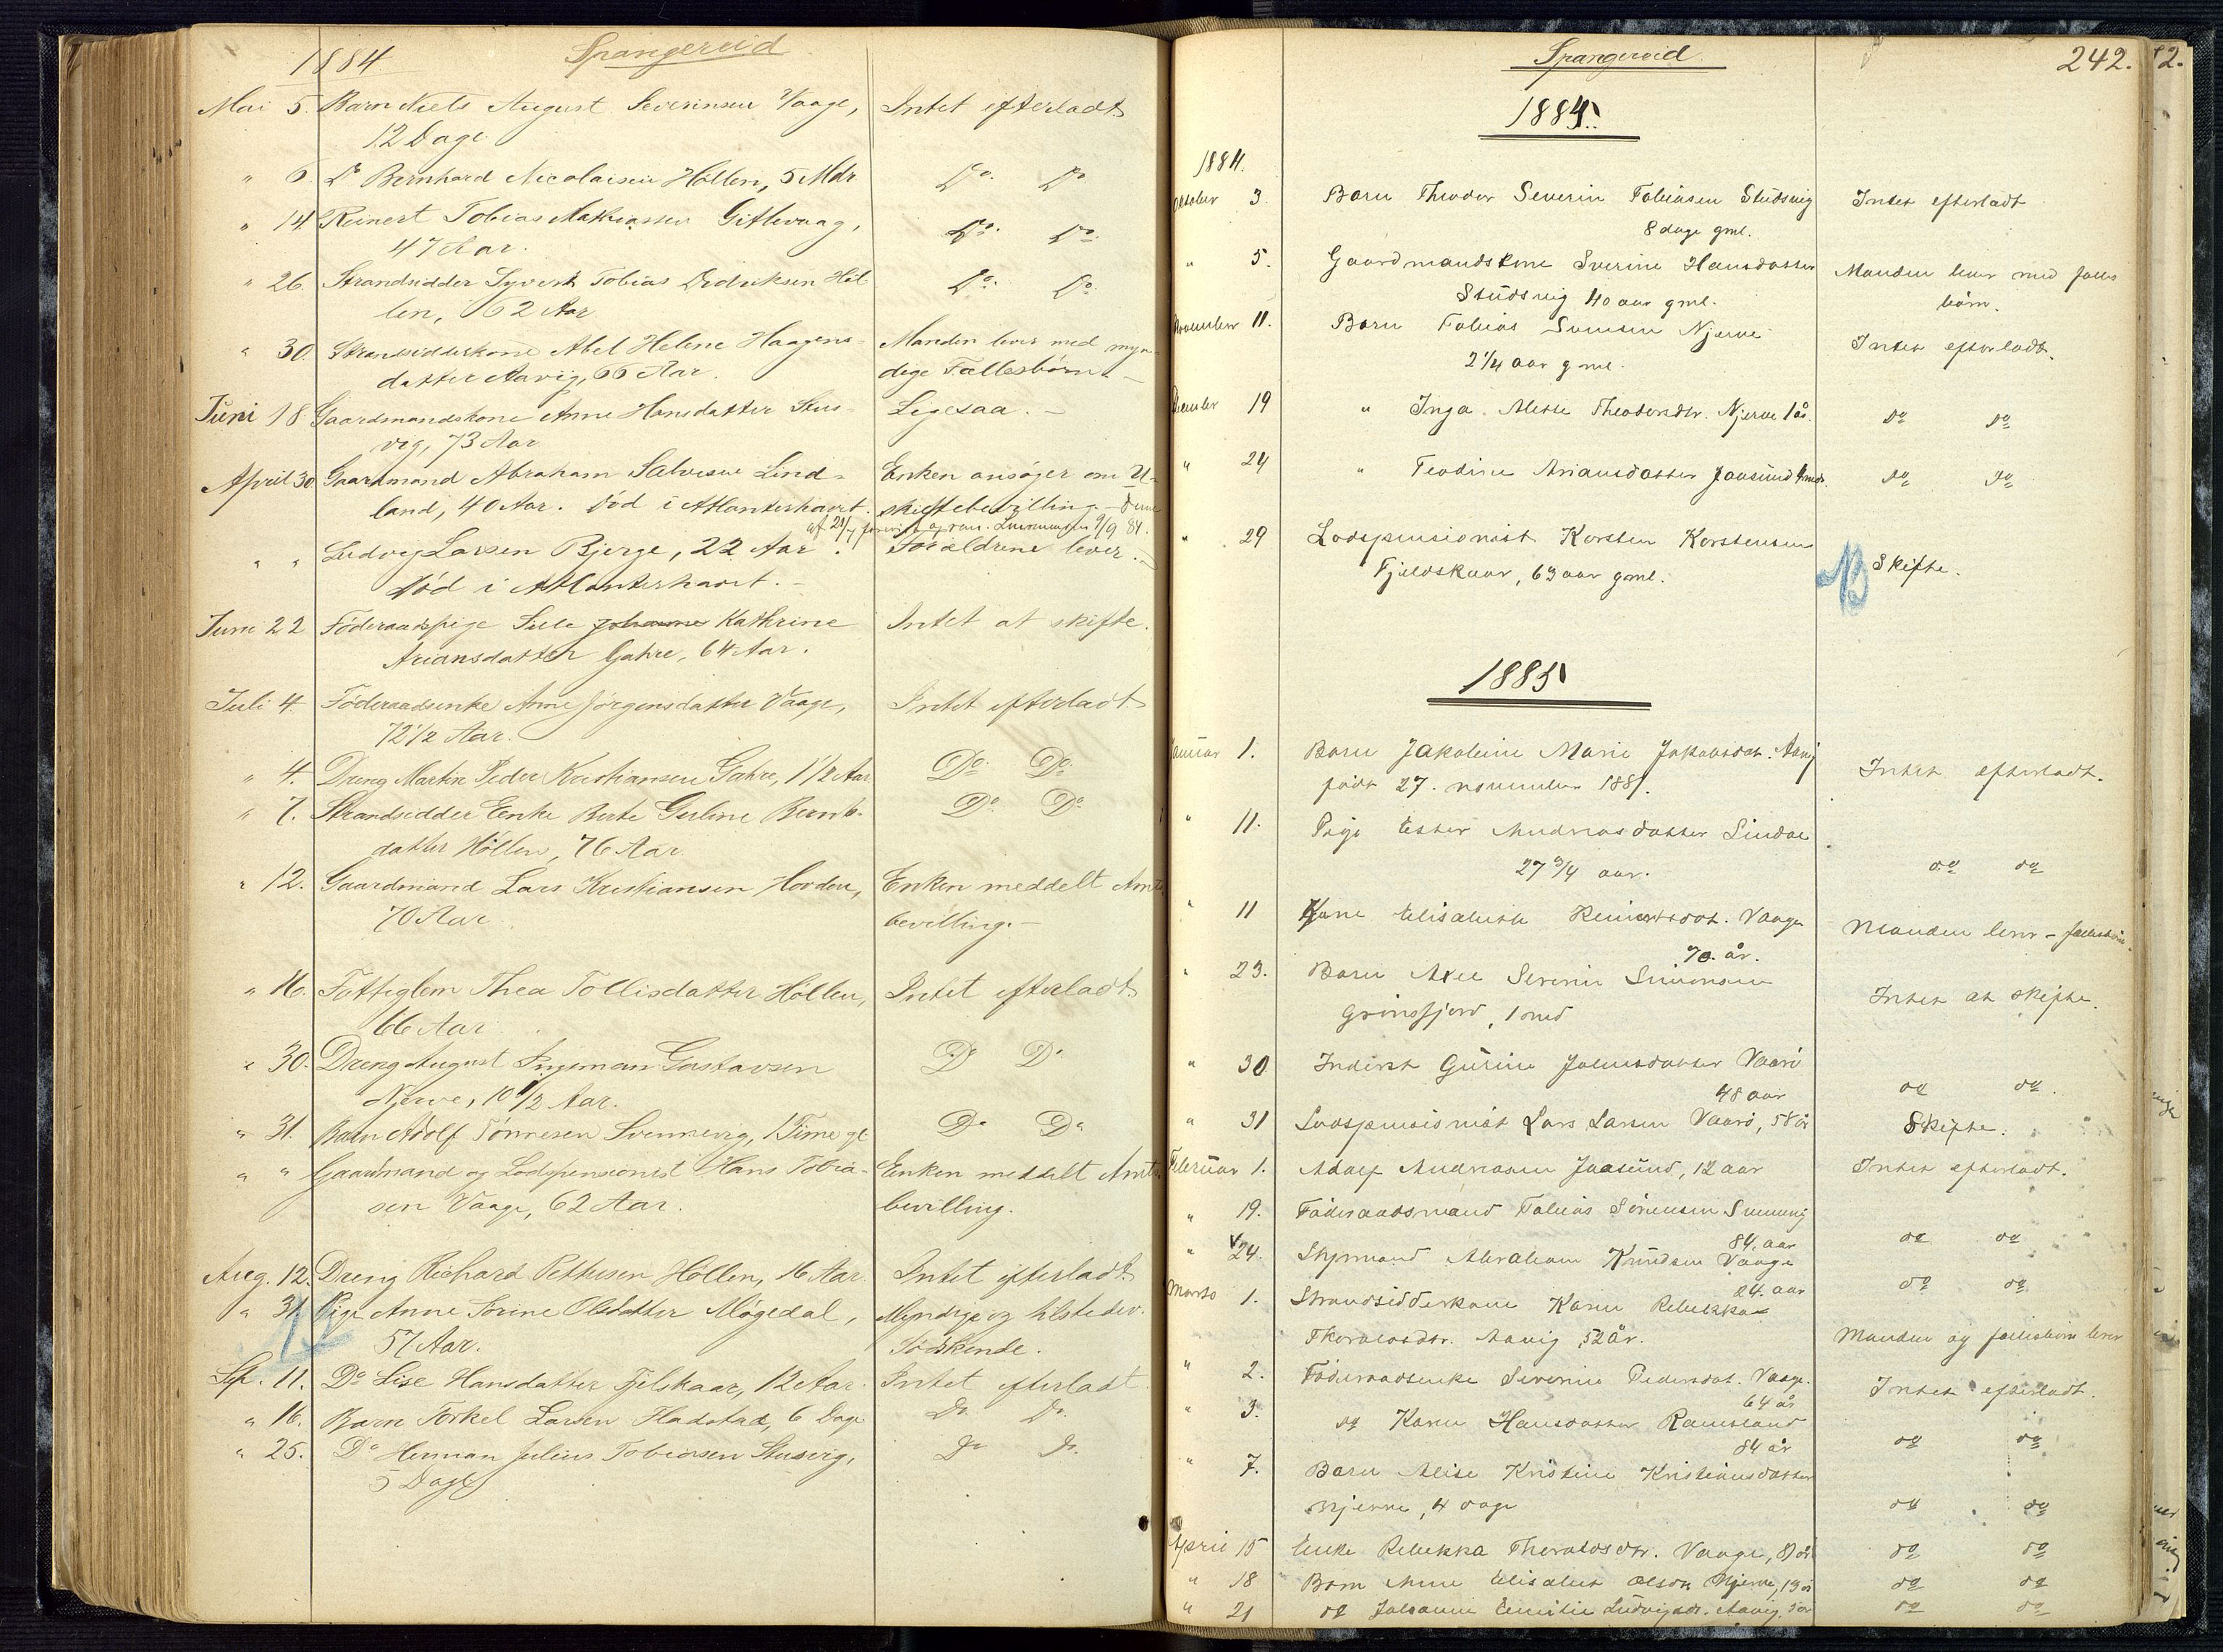 1884 Spangereid
Mai 5. Barn Niels August Severinsen Vaage, Intet efterladt
12 Dage
" 6. Do Bernhard Nicolaisen Höllen, 5 Mdr. Do. Do
" 14 Reinert Tobias Mathiassen Gitlevaag, Do. Do.
47 Aar.
" 26. Strandsidder Syvert Tobias Dedriksen Höl- Do. Do.
len, 62 Aar
" 30. Strandsidderskone Abel Helene Haagens- Manden lever med myn-
datter Aavig, 66 Aar. dige Fællesbörn. –
Juni 18. Gaardmandskone Anne Hansdatter Stus- Ligesaa. –
vig, 73 Aar
April 30 Gaardmand Abraham Salvesen Lind- Enken ansöger om U-
land, 40 Aar. Död i Atlanterhavet. skiftebevilling –
af 29/7 9/9 84.
" " Ludvig Larsen Bjerge, 22 Aar. Forældrene lever. –
Död i Atlanterhavet. –
Juni 22 Föderaadspige Sille Johanne Kathrine Intet at skifte.
Ariansdatter Gahre, 64 Aar.
Juli 4. Föderaadsenke Anne Jörgensdatter Vaage, Intet efterladt
72 1/2 Aar.
" 4. Dreng Martin Peder Kristiansen Gahre, 1 1/2 Aar Do. Do.
" 7. Strandsidder Enke Berte Guline Bernts- Do Do
datter Höllen, 76 Aar.
" 12. Gaardmand Lars Kristiansen Hordou, Enken meddelt Amts-
70 Aar bevilling. –
" 16. Fattiglem Thea Tollisdatter Höllen, Intet efterladt.
66 Aar.
" 30. Dreng August Ingeman Gustavsen Do Do
Njerve, 10 1/2 Aar.
" 31. Barn Adolf Tönnesen Svennevig, 1 Time gl. Do Do
" " Gaardmand og Lodspensionist Hans Tobia- Enken meddelt Amts-
sen Vaage, 62 Aar. bevilling.
Aug. 12. Dreng Richard Pettersen Höllen, 16 Aar. Intet efterladt.
" 31. Pige Anne Sorine Olsdatter Mögedal, Myndige og tilstedev.
57 Aar. Södskende.
Sep. 11. Do Lise Hansdatter Fjelskaar, 12 Aar. Intet efterladt
" 16. Barn Torkel Larsen Fladstad, 6 Dage Do Do.
" 25. Do Herman Julius Tobiasen Stusvig, Do Do.
5 Dage
Spangereid 242.
1884.
1884.
Oktober 3. Barn Theodor Severin Tobiasen Studsvig Intet efterladt
8 dage gml.
" 5. Gaardmandskone Sverine Hansdatter Manden lever med fælles
Studsvig 40 aar gml. börn.
November 11. Barn Tobias Svensen Njerve Intet efterladt.
2 1/4 aar gml.
December 19 " Inga Mette Theodordtr. Njerve 1 år. do do
" 24 " Teodine Ariansdatter Jaasund 4 mdr. do do
" 29 Lodspensionist Korsten Korstensen NB Skifte.
Fjeldskaar, 63 aar gml.
1885
Januar 1. Barn Jakobine Marie Jakobsdat. Aavig Intet efterladt.
født 27. november 1881.
" 11. Pige Ester Andreasdatter Lindal
27 3/4 aar. do do
" 11 Kone Elisabeth Reinertsdat. Vaage Manden lever – fællesbörn.
70. år.
" 23. Barn Axel Severin Simonsen Intet at skifte.
Grönsfjord, 1 md
" 30 Inderst Gurine Jakobsdatter Vaarö
48 aar do do.
" 31 Lodspensionist Lars Larsen Vaarö, 58 år Skifte.
Februar 1. Adolf Andreassen Jaasund, 12 aar Intet efterladt.
" 19. Föderaadsmand Tobias Sörensen Svennevig
84. aar do do
" 24. Styrmand Abraham Knudsen Vaage
24. aar do do
Marts 1. Strandsidderkone Karen Rebekka
Thorvaldsdr. Aavig, 52 år. Manden og fællesbörn lever
" 2. Föderaadsenke Severine Pedersdat. Vaage. Intet efterladt.
64 år
" 3. do Karen Hansdatter Ramsland
84 år do do
" 7. Barn Elise Kristine Kristiansdatter
Njerve, 4 dage do do
April 15 Enke Rebekka Thorvaldsdtr. Vaage, 81 år do do
" 18 Barn Anne Elisabet Olsdtr. Njerve, 13 år do do
" 21 do Johanne Emilie Ludvigsdr. Aavig, 5 år do do